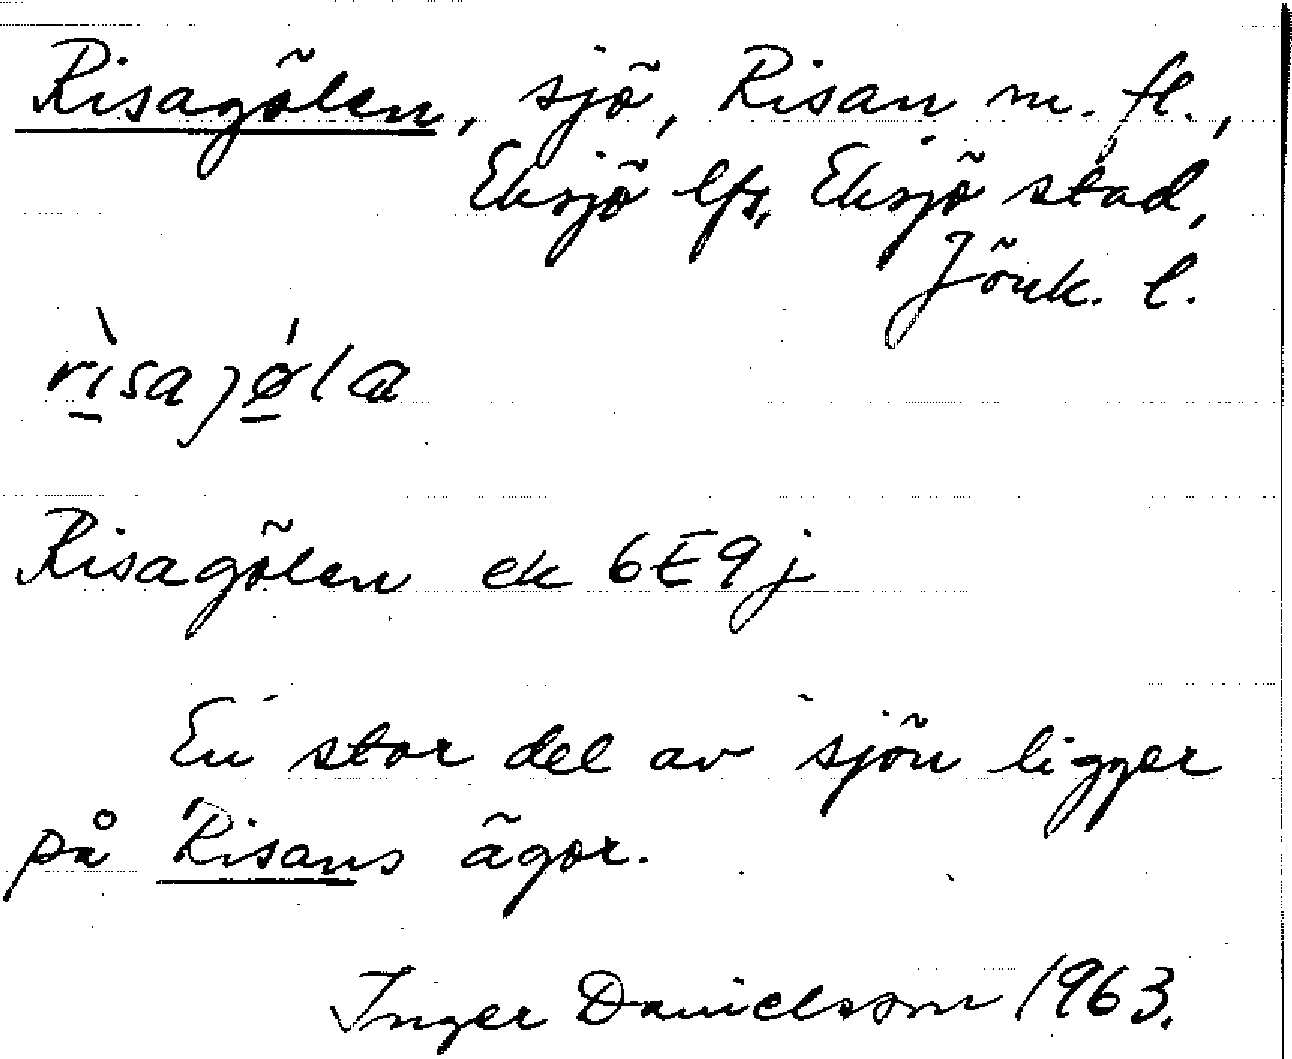 Risagölen, sjö, Risan m. fl.,
Eksjö lfs, Eksjö stad,
Jönk. l.
rìsajǿla
Risagölen ek 6E9j
En stor del av sjön ligger
på Risans ägor.
Inger Danielsson 1963.